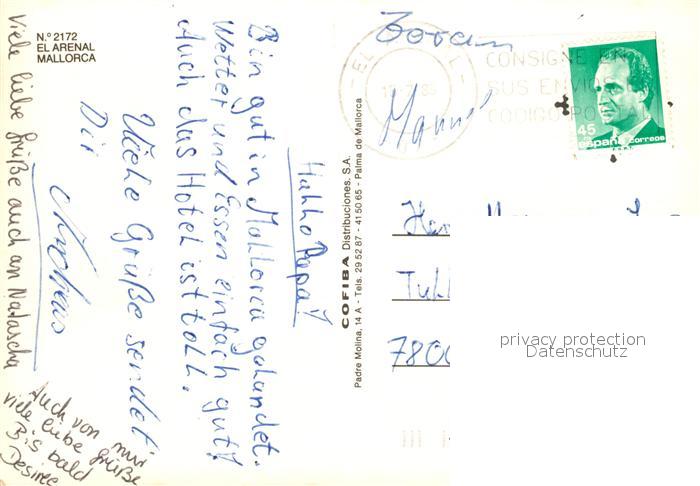 N.º 2172
EL ARENAL
MALLORCA
Hallo Papa!
Bin gut in Mallorca gelandet.
Wetter und Essen einfach gut!
Auch das Hotel ist toll.
Viele Grüße sendet
Dir
Viele liebe Grüße auch an Natascha
Auch von mir
viele liebe Grüße
Bis bald
Desiree
COFIBA Distribuciones, S.A.
Padre Molina, 14 A - Tels. 29 52 87 - 41 50 65 - Palma de Mallorca
Zoran
CONSIGNE EN
SUS ENVIOS
CODIGO PO
45
españa correos
7800
privacy protection
Datenschutz